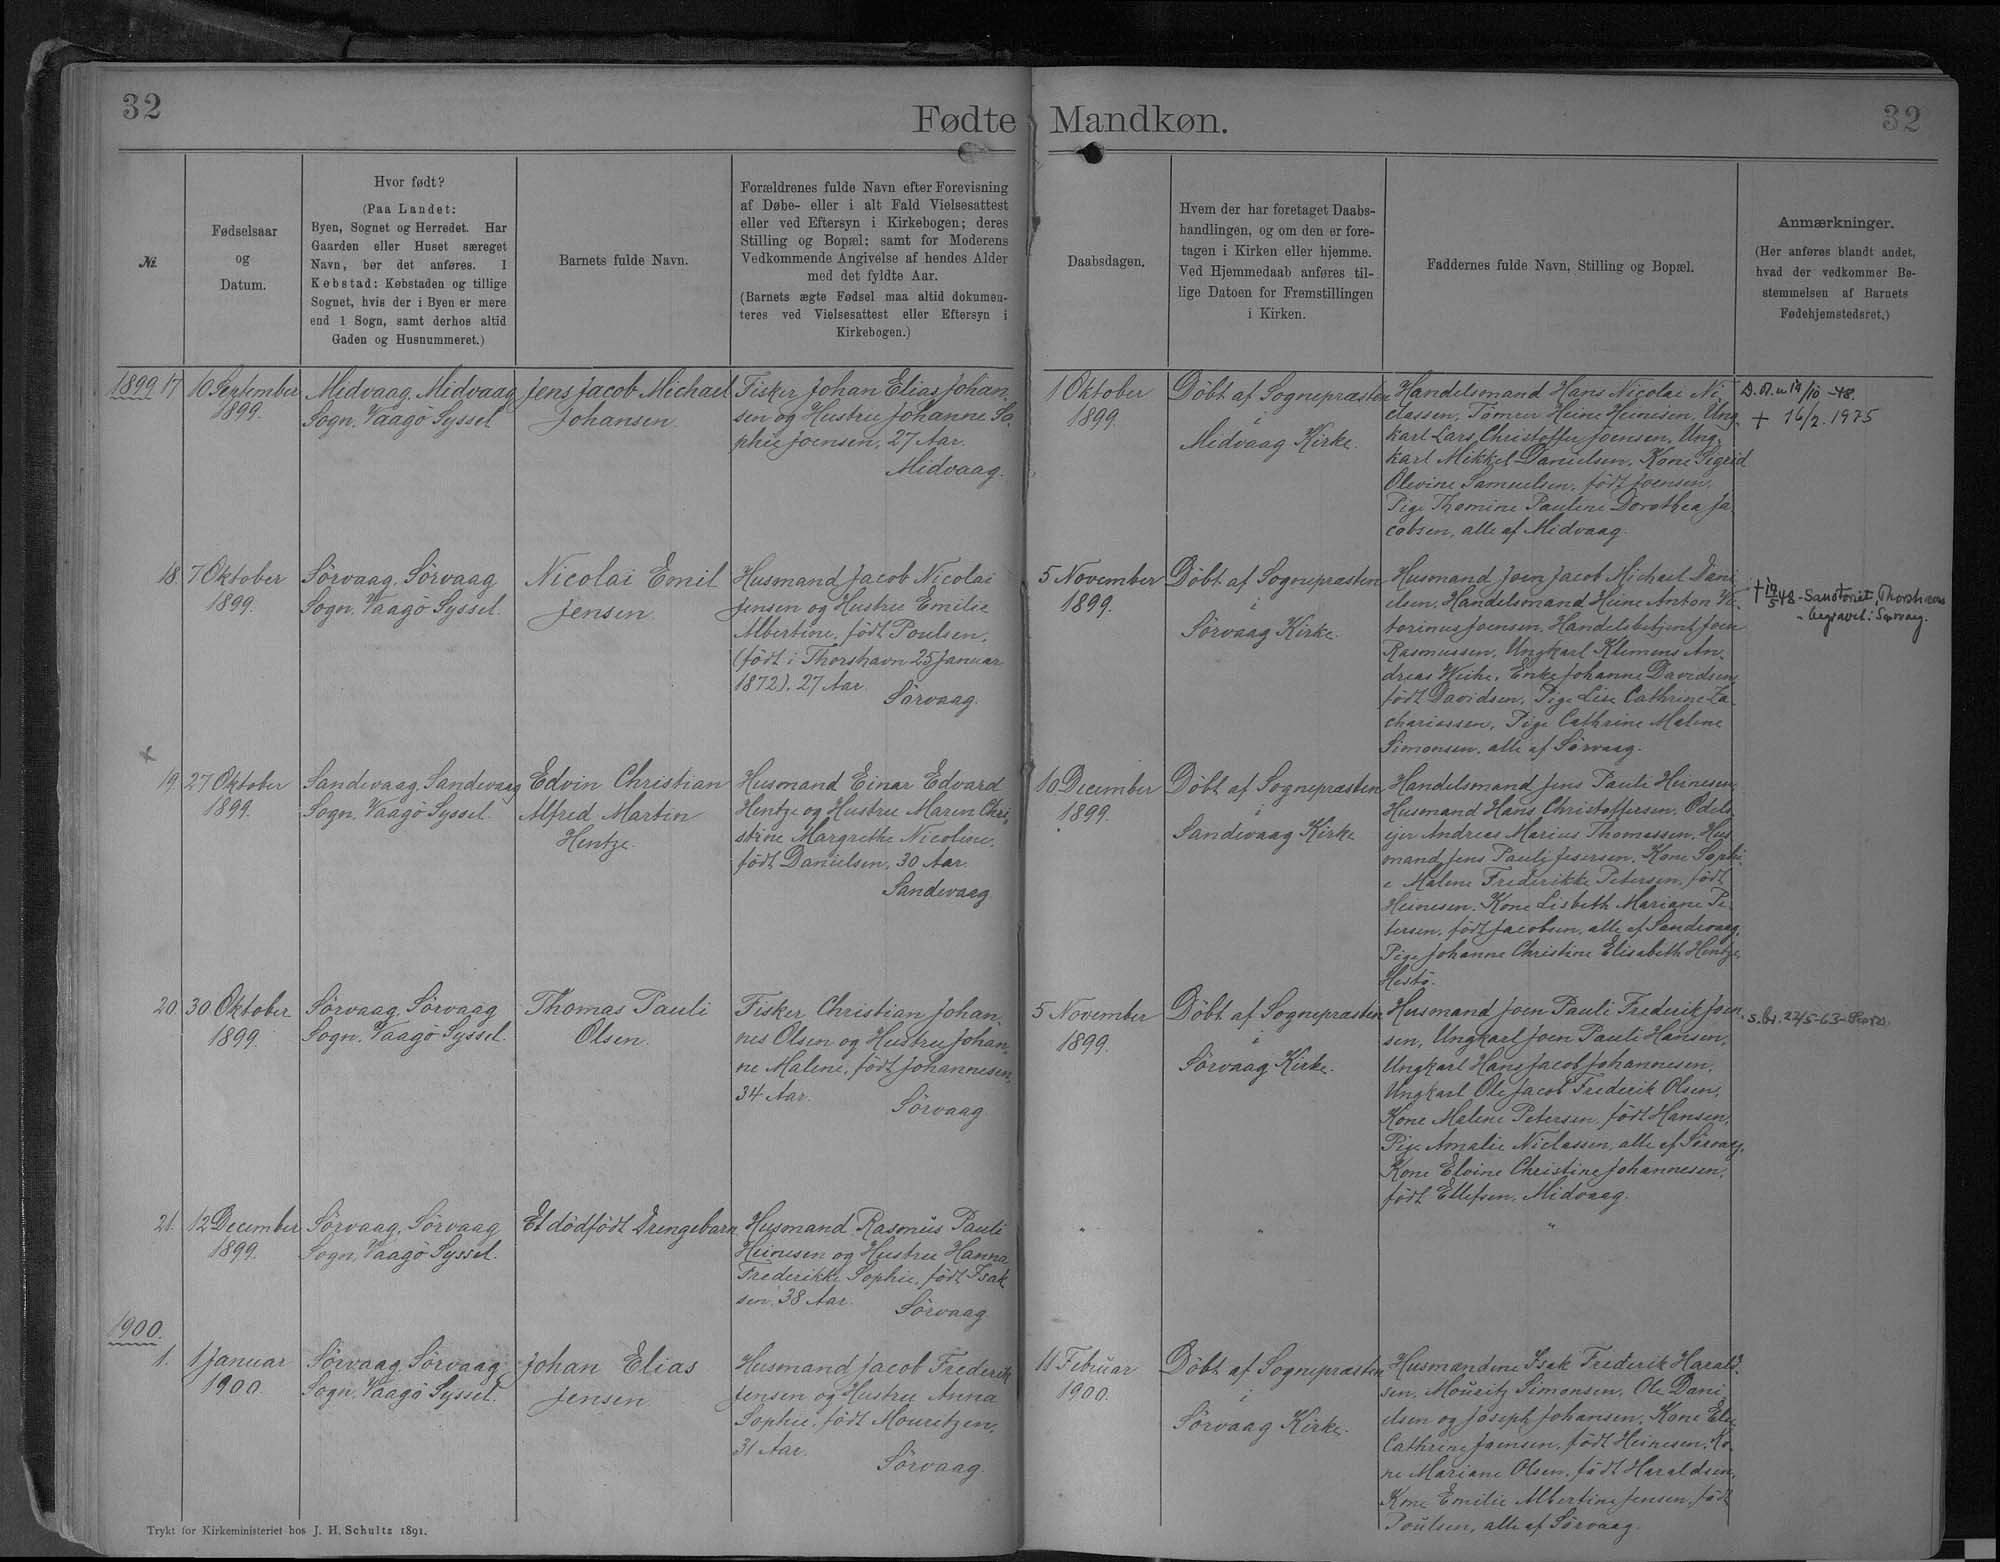 32
Fødte Mandkøn.
32
Nr.
Fødselsaar
og
Datum.
Hvor født?
(Paa Landet:
Byen, Sognet og Herredet. Har
Gaarden eller Huset særeget
Navn, bør det anføres. I
Købstad: Købstaden og tillige
Sognet, hvis der i Byen er mere
end 1 Sogn, samt derhos altid
Gaden og Husnummeret.)
Barnets fulde Navn.
Forældrenes fulde Navn efter Forevisning
af Døbe- eller i alt Fald Vielsesattest
eller ved Eftersyn i Kirkebogen; deres
Stilling og Bopæl; samt for Moderens
Vedkommende Angivelse af hendes Alder
med det fyldte Aar.
(Barnets ægte Fødsel maa altid dokumen-
teres ved Vielsesattest eller Eftersyn i
Kirkebogen.)
Daabsdagen.
Hvem der har foretaget Daabs-
handlingen, og om den er fore-
tagen i Kirken eller hjemme.
Ved Hjemmedaab anføres til-
lige Datoen for Fremstillingen
i Kirken.
Faddernes fulde Navn, Stilling og Bopæl.
Anmærkninger.
(Her anføres blandt andet,
hvad der vedkommer Be-
stemmelsen af Barnets
Fødehjemstedsret.)
1899 17
10 September
1899.
Midvaag, Midvaag
Sogn, Vaagö Syssel
Jens Jacob Michael
Johansen
Fisker Johan Elias Johan-
sen og Hustru Johanne So-
phie Joensen, 27 Aar.
Midvaag.
1 Oktober
1899.
Döbt af Sognepræsten
i
Midvaag Kirke.
Handelsmand Hans Nicolai Ni-
classen, Tömrer Heine Heinesen, Ung-
karl Lars Christoffer Joensen, Ung-
karl Mikkel Danielsen, Kone Sigrid
Olevine Samuelsen, födt Joensen,
Pige Thomine Pauline Dorothea Ja-
cobsen, alle af Midvaag.
D. A. u 19/10 -48.
+ 16/2. 1975
18.
7 Oktober
1899.
Sörvaag, Sörvaag
Sogn, Vaagö Syssel.
Nicolai Emil
Jensen
Husmand Jacob Nicolai
Jensen og Hustru Emilie
Albertine, födt Poulsen,
(födt i Thorshavn 25 Januar
1872), 27 Aar.
Sörvaag.
5 November
1899.
Döbt af Sognepræsten
i
Sörvaag Kirke.
Husmand Joen Jacob Michael Dani-
elsen, Handelsmand Heine Anton Vic-
torinus Joensen, Handelsbetjent Joen
Rasmussen, Ungkarl Klemens An-
dreas Weihe, Enke Johanne Davidsen
födt Davidsen, Pige Lise Cathrine Za-
chariassen, Pige Cathrine Malene
Simonsen, alle af Sörvaag.
+ 19/5 48 - Sanatoriet, Thorshavn
- begravet i Sørvaag.
19.
27 Oktober
1899.
Sandevaag, Sandevaag
Sogn, Vaagö Syssel.
Edvin Christian
Alfred Martin
Hentze.
Husmand Einar Edvard
Hentze og Hustru Maren Chri-
stine Margrethe Nicoline,
födt Danielsen, 30 Aar.
Sandevaag
10 December
1899.
Döbt af Sognepræsten
i
Sandevaag Kirke
Handelsmand Jens Pauli Heinesen
Husmand Hans Christoffersen, Odels-
ejer Andreas Marius Thomassen, Hus-
mand Jens Pauli Jesersen, Kone Sophi-
e Malene Frederikke Petersen, födt
Heinesen, Kone Lisbeth Mariane Pe-
tersen, födt Jacobsen, alle af Sandevaag,
Pige Johanne Christine Elisabeth Hentze,
Hestö.
20.
30 Oktober
1899.
Sörvaag, Sörvaag
Sogn, Vaagö Syssel.
Thomas Pauli
Olsen.
Fisker Christian Johan-
nes Olsen og Hustru Johan-
ne Malene, födt Johannesen,
34 Aar.
Sörvaag
5 November
1899.
Döbt af Sognepræsten
i
Sörvaag Kirke.
Husmand Joen Pauli Frederik Joen-
sen, Ungkarl Joen Pauli Hansen,
Ungkarl Hans Jacob Johannesen,
Ungkarl Ole Jacob Frederik Olsen,
Kone Malene Petersen, födt Hansen,
Pige Amalie Niclassen, alle af Sörvaag,
Kone Elvine Christine Johannesen,
födt Ellefsen, Midvaag.
s. br. 22/5-63
21.
12 December
1899.
Sörvaag, Sörvaag
Sogn, Vaagö Syssel.
Et dödfödt Drengebarn
Husmand Rasmus Pauli
Heinesen og Hustru Hanna
Frederikke Sophie, födt Isak-
sen, 38 Aar.
Sörvaag
"
"
"
1900.
1.
1 Januar
1900.
Sörvaag, Sörvaag
Sogn, Vaagö Syssel.
Johan Elias
Jensen
Husmand Jacob Frederik
Jensen og Hustru Anna
Sophie, födt Mouritzen,
31 Aar.
Sörvaag
11 Februar
1900.
Döbt af Sognepræsten
i
Sörvaag Kirke.
Husmændene Isak Frederik Harald-
sen, Mouritz Simonsen, Ole Dani-
elsen og Joseph Johansen, Kone Else
Cathrine Joensen, födt Heinesen, Ko-
ne Mariane Olsen, födt Haraldsen,
Kone Emilie Albertine Jensen, födt
Poulsen, alle af Sörvaag.
Trykt for Kirkeministeriet hos J. H. Schultz 1891.